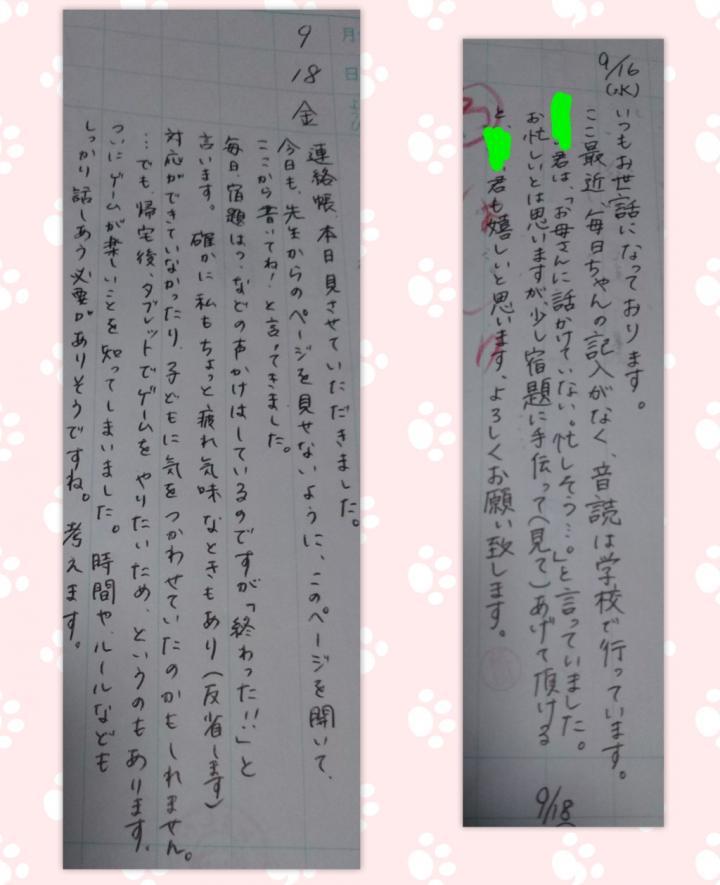 9/16
(水)
いつもお世話になっております。
ここ最近、毎日ちゃんの記入がなく、音読は学校で行っています。
君は、「お母さんに話かけていない。忙しそう…。」と言っていました。
お忙しいとは思いますが、少し宿題に手伝って(見て)あげて頂ける
と、
君も嬉しいと思います。よろしくお願い致します。
9/18
9
月
18
日
金
連絡帳、本日見させていただきました。
今日も、先生からのページを見せないように、このページを開いて、
ここから書いてね!と言ってきました。
毎日、宿題はっ、などの声かけはしているのですが「終わった!!」と
言います。確かに私もちょっと疲れ気味なときもあり(反省します)
対応ができていなかったり、子どもに気をつかわせていたのかもしれません。
…でも、帰宅後、タブレットでゲームをやりたいため、というのもあります。
ついにゲームが楽しいことを知ってしまいました。時間や、ルールなども
しっかり話しあう必要がありそうですね。考えます。